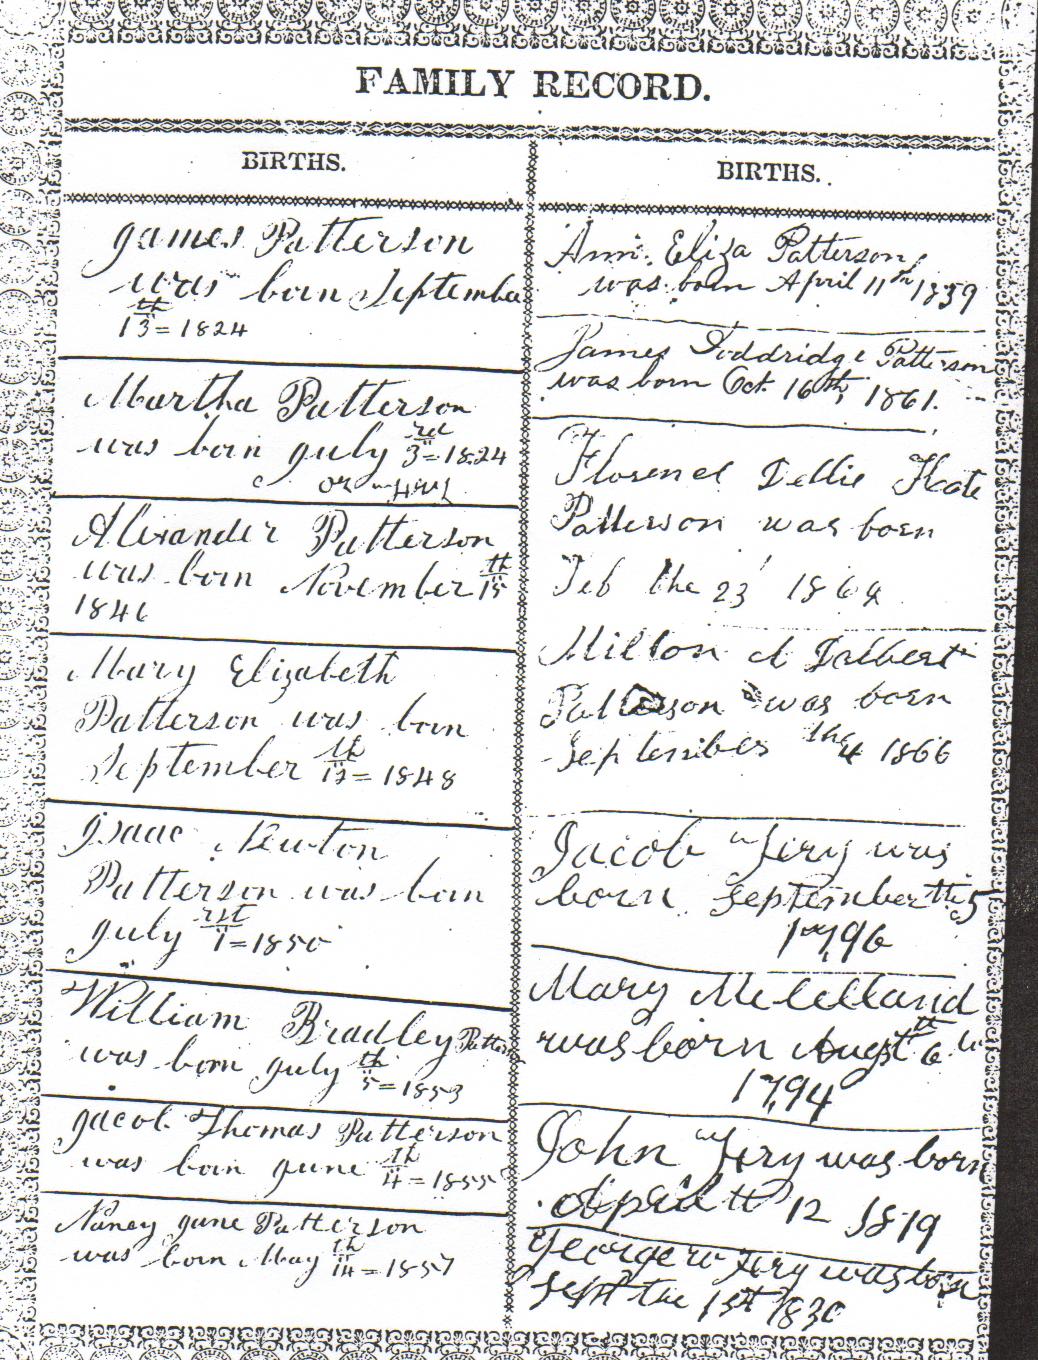 FAMILY RECORD.
BIRTHS.
James Patterson
was born September
13th 1824
Martha Patterson
was born July 3rd 1824
or
Alexander Patterson
was born November 15th
1846
Mary Elizabeth
Patterson was born
September th 1848
Isaac Newton
Patterson was born
July 1rst 1850
William Bradley
was born July 5th 1853
Jacob Thomas Patterson
was born June 4th 1855
Nancy Jane Patterson
was born May 14th 1857
BIRTHS.
Ann Eliza Patterson
was born April 11th 1859
James Doddridge Patterson
was born Oct. 16th, 1861.
Florence Dellie Kate
Patterson was born
Feb the 23 1864
Milton A Talbert
Patterson was born
September the 4 1866
Jacob was
born September the 5
1796
Mary Mclelland
was born Augst 6th
1794
John was born
April th 12 1819
George W was born
Sept the 1st 1830